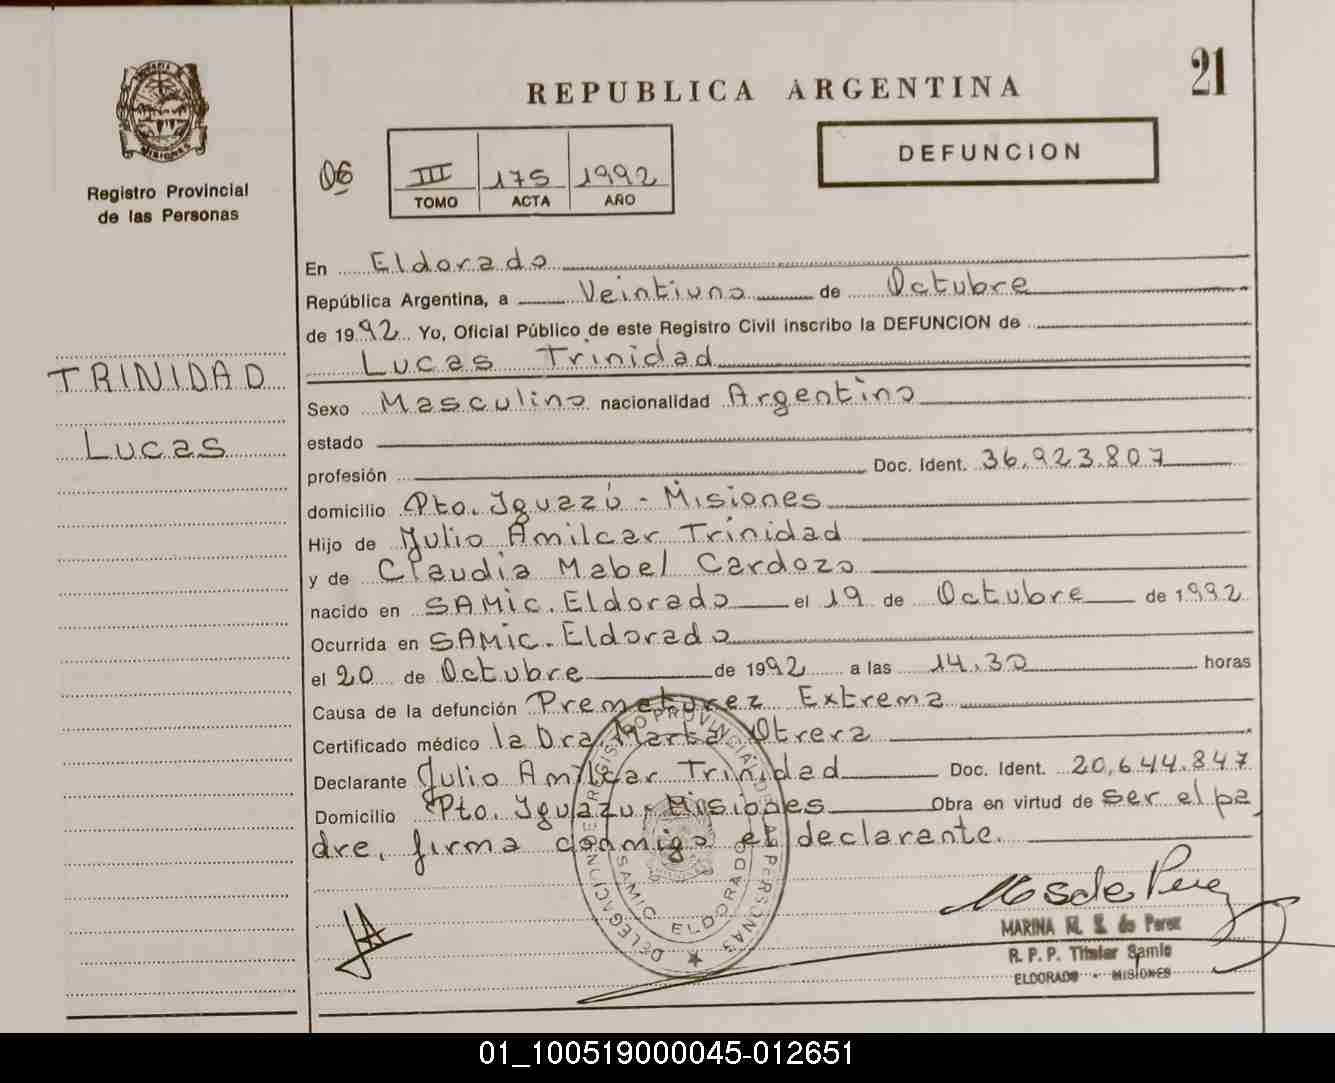 REPUBLICA ARGENTINA
21
MISIONES
Registro Provincial
de las Personas
06
III 175 1992
TOMO ACTA AÑO
DEFUNCION
TRINIDAD
Lucas
En Eldorado
República Argentina, a Veintiuno de Octubre
de 1992 Yo, Oficial Público de este Registro Civil inscribo la DEFUNCION de
Lucas Trinidad
Sexo Masculino nacionalidad Argentino
estado
profesión Doc. Ident. 36.923.807
domicilio Pto. Iguazú - Misiones
Hijo de Julio Amilcar Trinidad
y de Claudia Mabel Cardozo
nacido en SAMic. Eldorado el 19 de Octubre de 1.992
Ocurrida en SAMic. Eldorado
el 20 de Octubre de 1992 a las 14.30 horas
Causa de la defunción Prematurez Extrema
Certificado médico la Dra. Marta Otrera
Declarante Julio Amilcar Trinidad Doc. Ident. 20.644.847
Domicilio Pto. Iguazu - Misiones Obra en virtud de ser el pa
dre, firma conmigo el declarante.
REGISTRO PROVINCIAL DE LAS PERSONAS
DELEGACION
SAMIC ELDORADO
MARINA M. S. de Perez
R. P. P. Titular Samic
ELDORADO - MISIONES
01_100519000045-012651